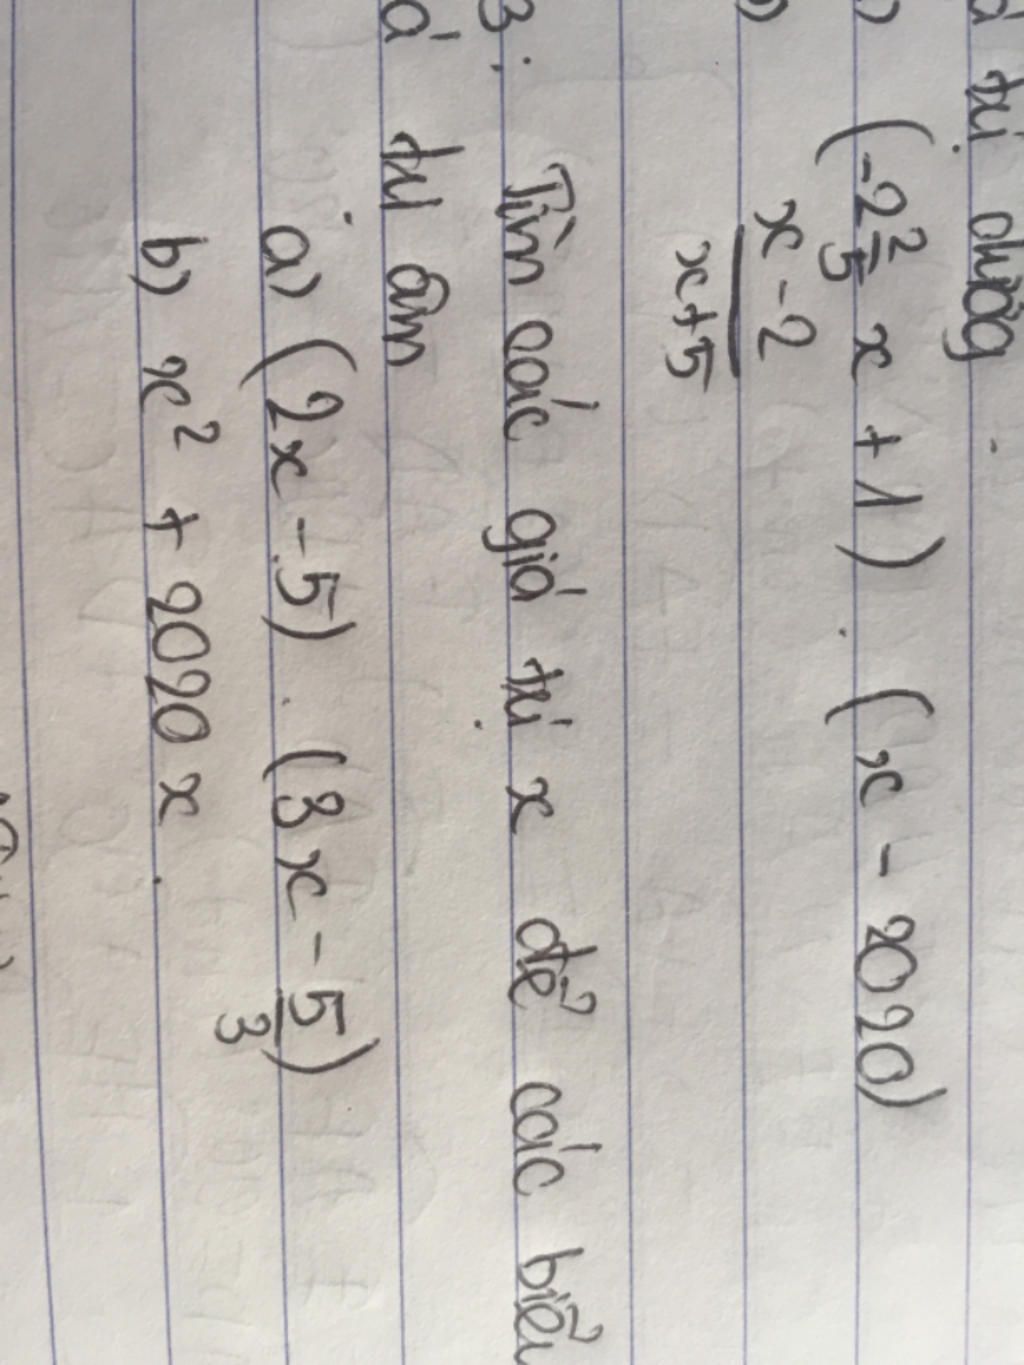 trị dương
(-2 2/5 x + 1) . (x - 2020)
x - 2 / x + 5
3: Tìm các giá trị x để các biểu
á trị âm
a) (2x - 5) . (3x - 5/3)
b) x² + 2020x.